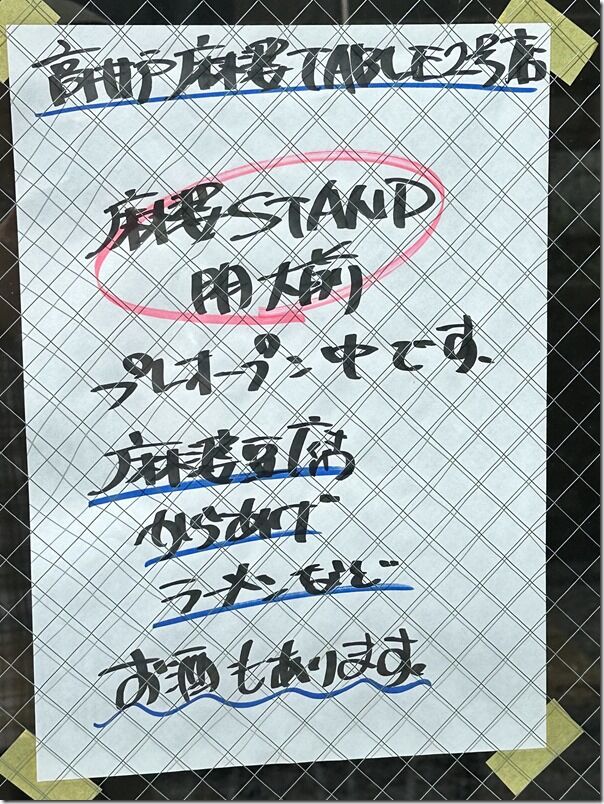 高井戸麻婆TABLE2号店
麻婆STAND
明大前
プレオープン中です。
麻婆豆腐
からあげ
ラーメンなど
お酒もあります。